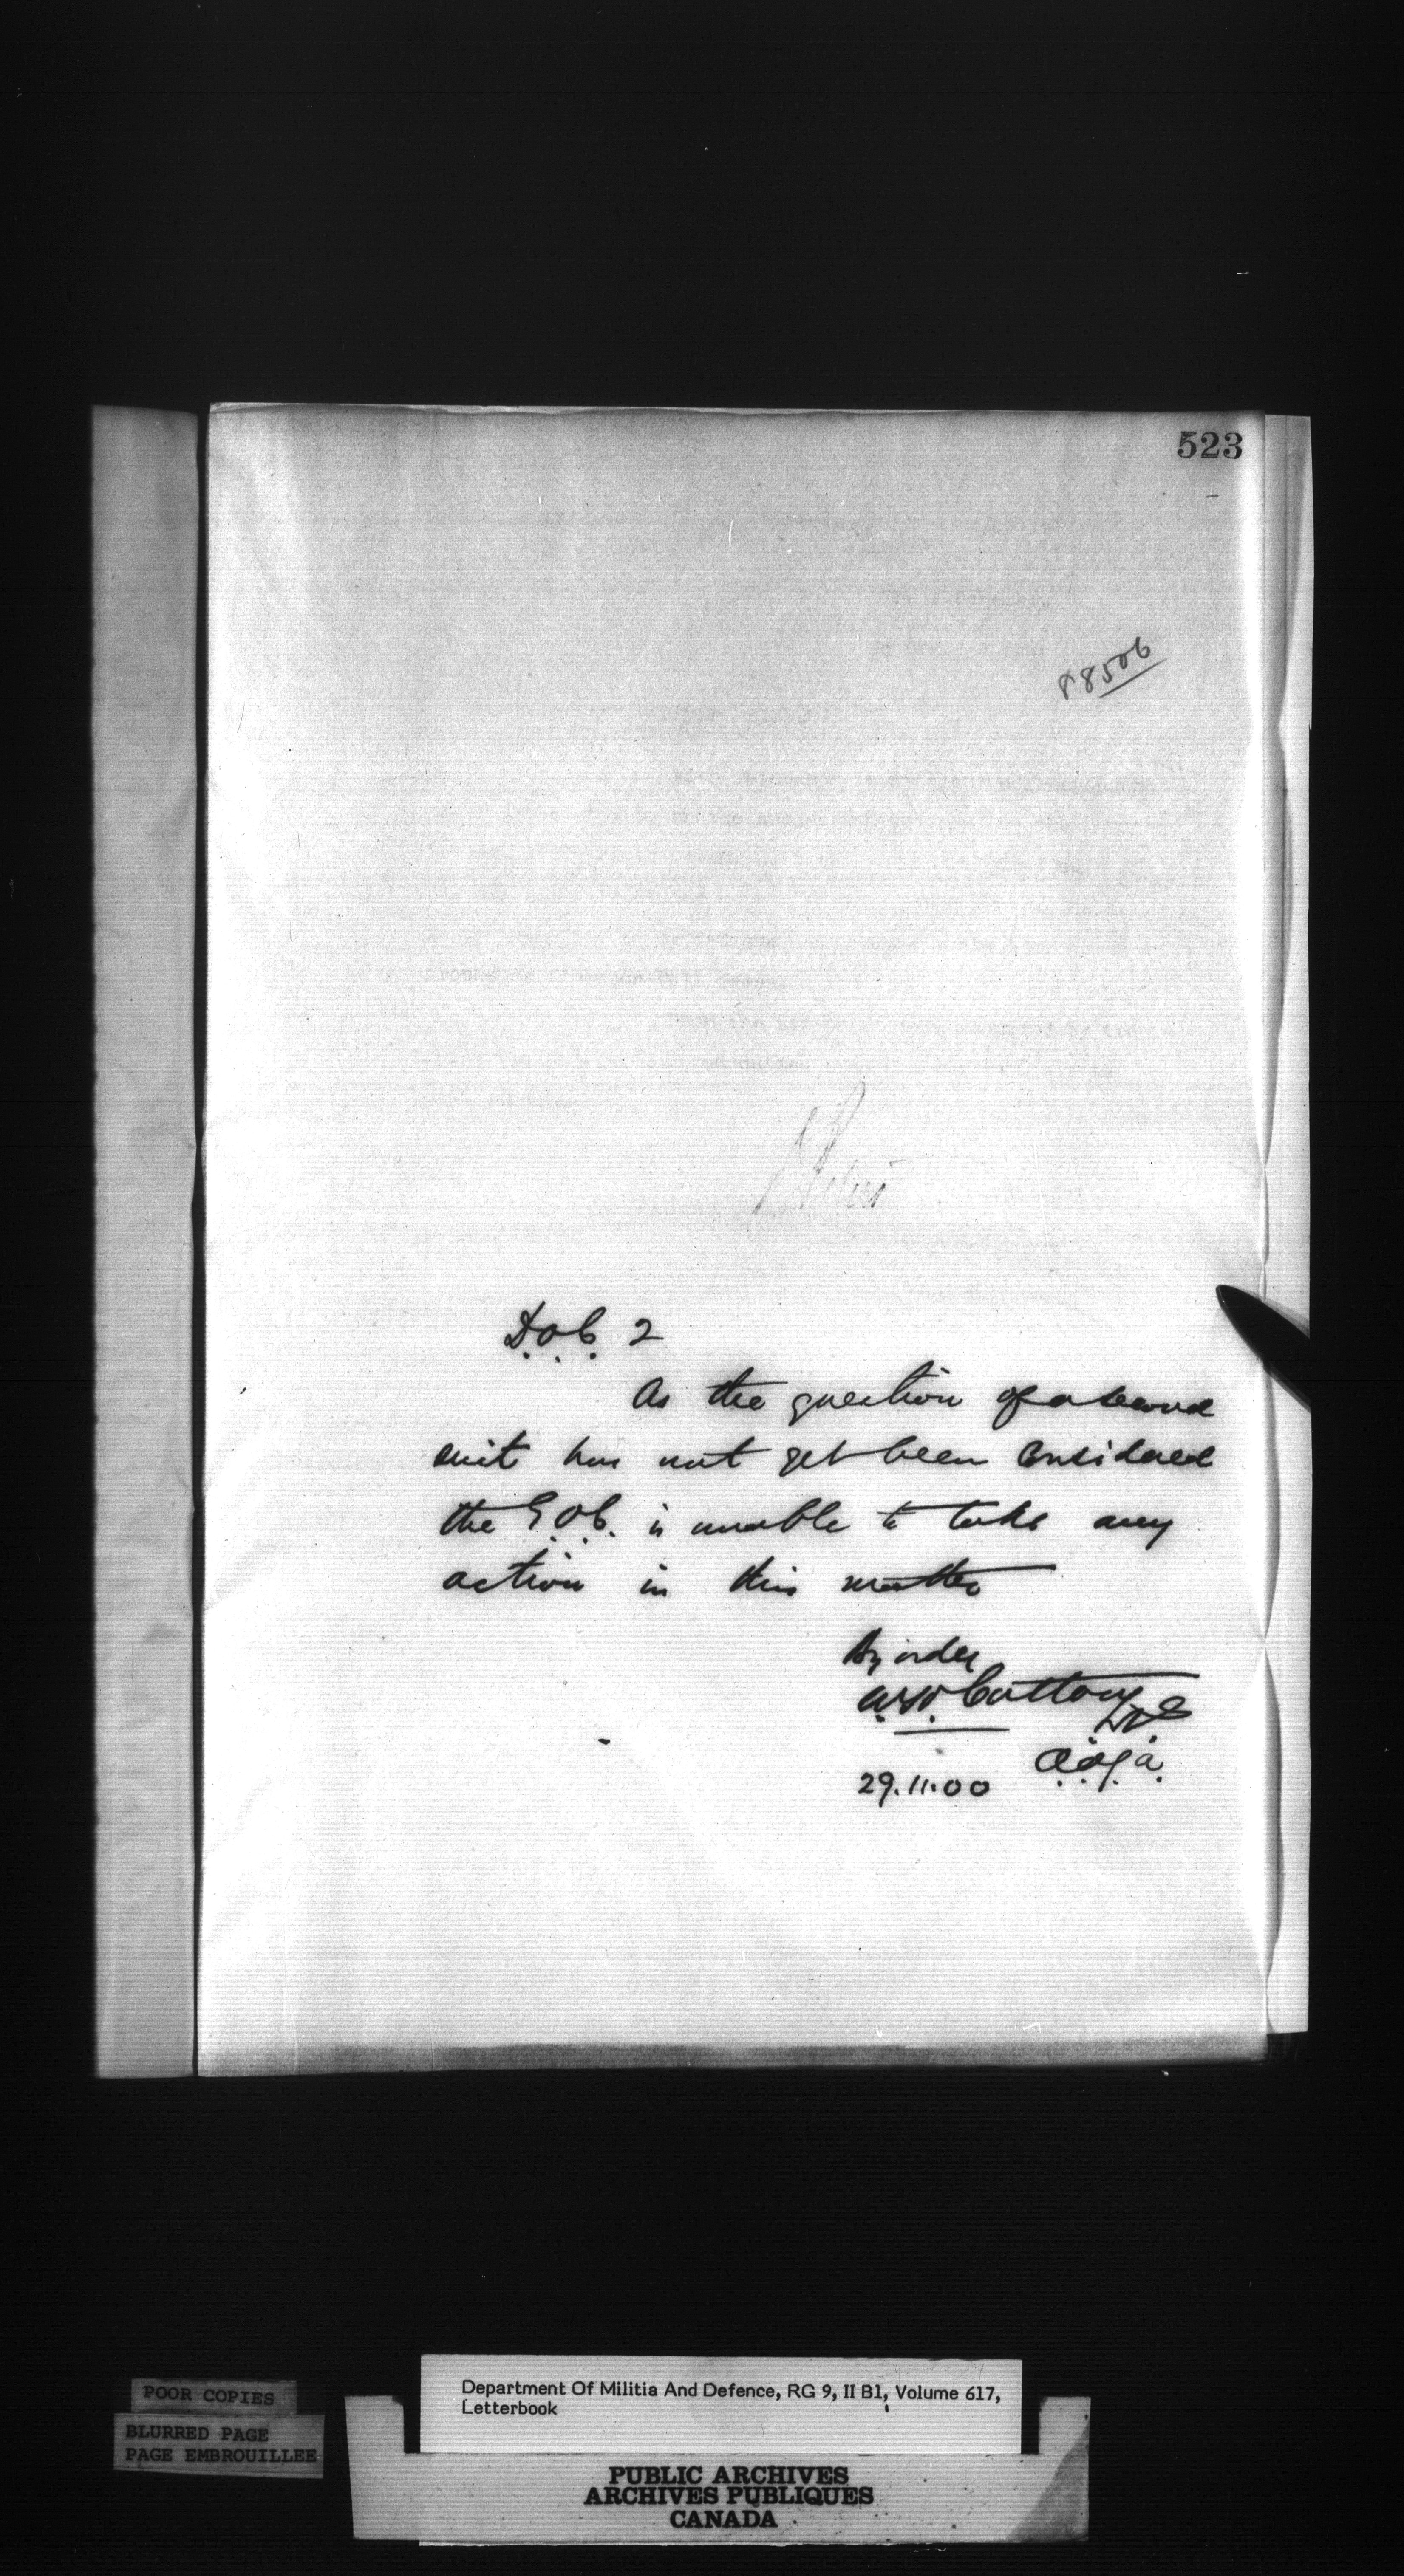 523
88506
D.O.C. 2
As the question of a second
suit has not yet been Considered
the G.O.C. is unable to take any
action in this matter
By order
29.11.00 A.A.G.A.
POOR COPIES
BLURRED PAGE
PAGE EMBROUILLEE
Department Of Militia And Defence, RG 9, II B1, Volume 617,
Letterbook
PUBLIC ARCHIVES
ARCHIVES PUBLIQUES
CANADA